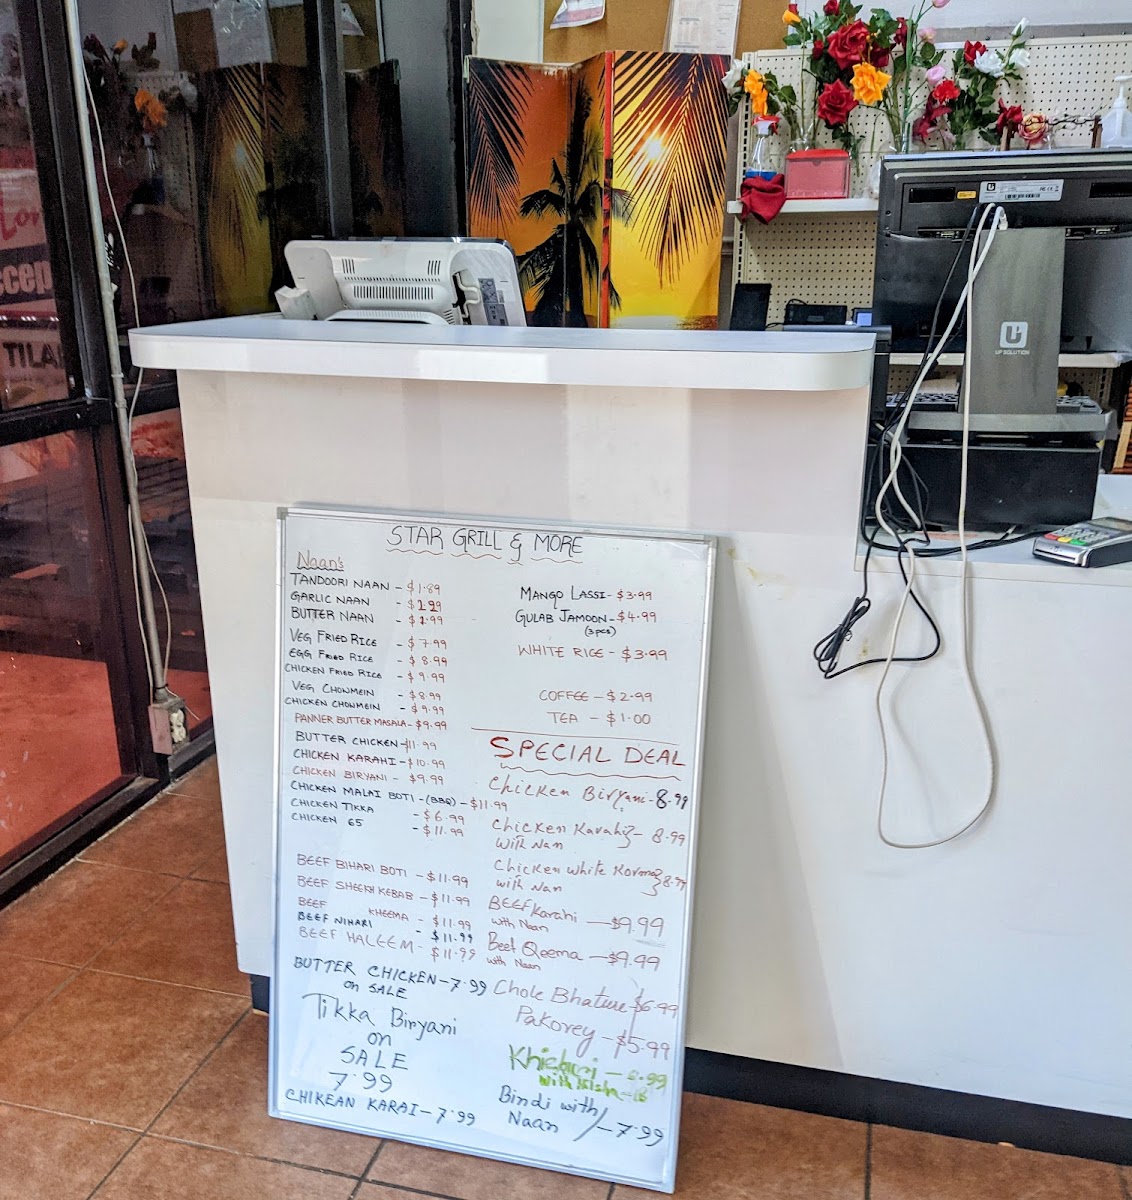 ccep
TILA
UP SOLUTION
STAR GRILL & MORE
Naan's
TANDOORI NAAN - $1.89
GARLIC NAAN - $1.99
BUTTER NAAN - $1.99
VEG FRIED RICE - $7.99
EGG FRIED RICE - $8.99
CHICKEN FRIED RICE - $9.99
VEG CHOWMEIN - $8.99
CHICKEN CHOWMEIN - $9.99
PANNER BUTTER MASALA - $9.99
BUTTER CHICKEN - $11.99
CHICKEN KARAHI - $10.99
CHICKEN BIRYANI - $9.99
CHICKEN MALAI BOTI - (BBQ) - $11.99
CHICKEN TIKKA - $6.99
CHICKEN 65 - $11.99
BEEF BIHARI BOTI - $11.99
BEEF SHEEKH KEBAB - $11.99
BEEF KHEEMA - $11.99
BEEF NIHARI - $11.99
BEEF HALEEM - $11.99
BUTTER CHICKEN - 7.99
on SALE
Tikka Biryani
on
SALE
7.99
CHIKEAN KARAI - 7.99
MANGO LASSI - $3.99
GULAB JAMOON - $4.99
(3pcs)
WHITE RICE - $3.99
COFFEE - $2.99
TEA - $1.00
SPECIAL DEAL
Chicken Biryani - 8.99
Chicken Karahi - 8.99
with Nan
Chicken white Korma 8.99
with Nan
BEEF Karahi - $9.99
with Naan
Beef Qeema - $9.99
with Naan
Chole Bhature $6.99
Pakorey - $5.99
Khichri - .99
with
Bindi with
Naan - 7.99